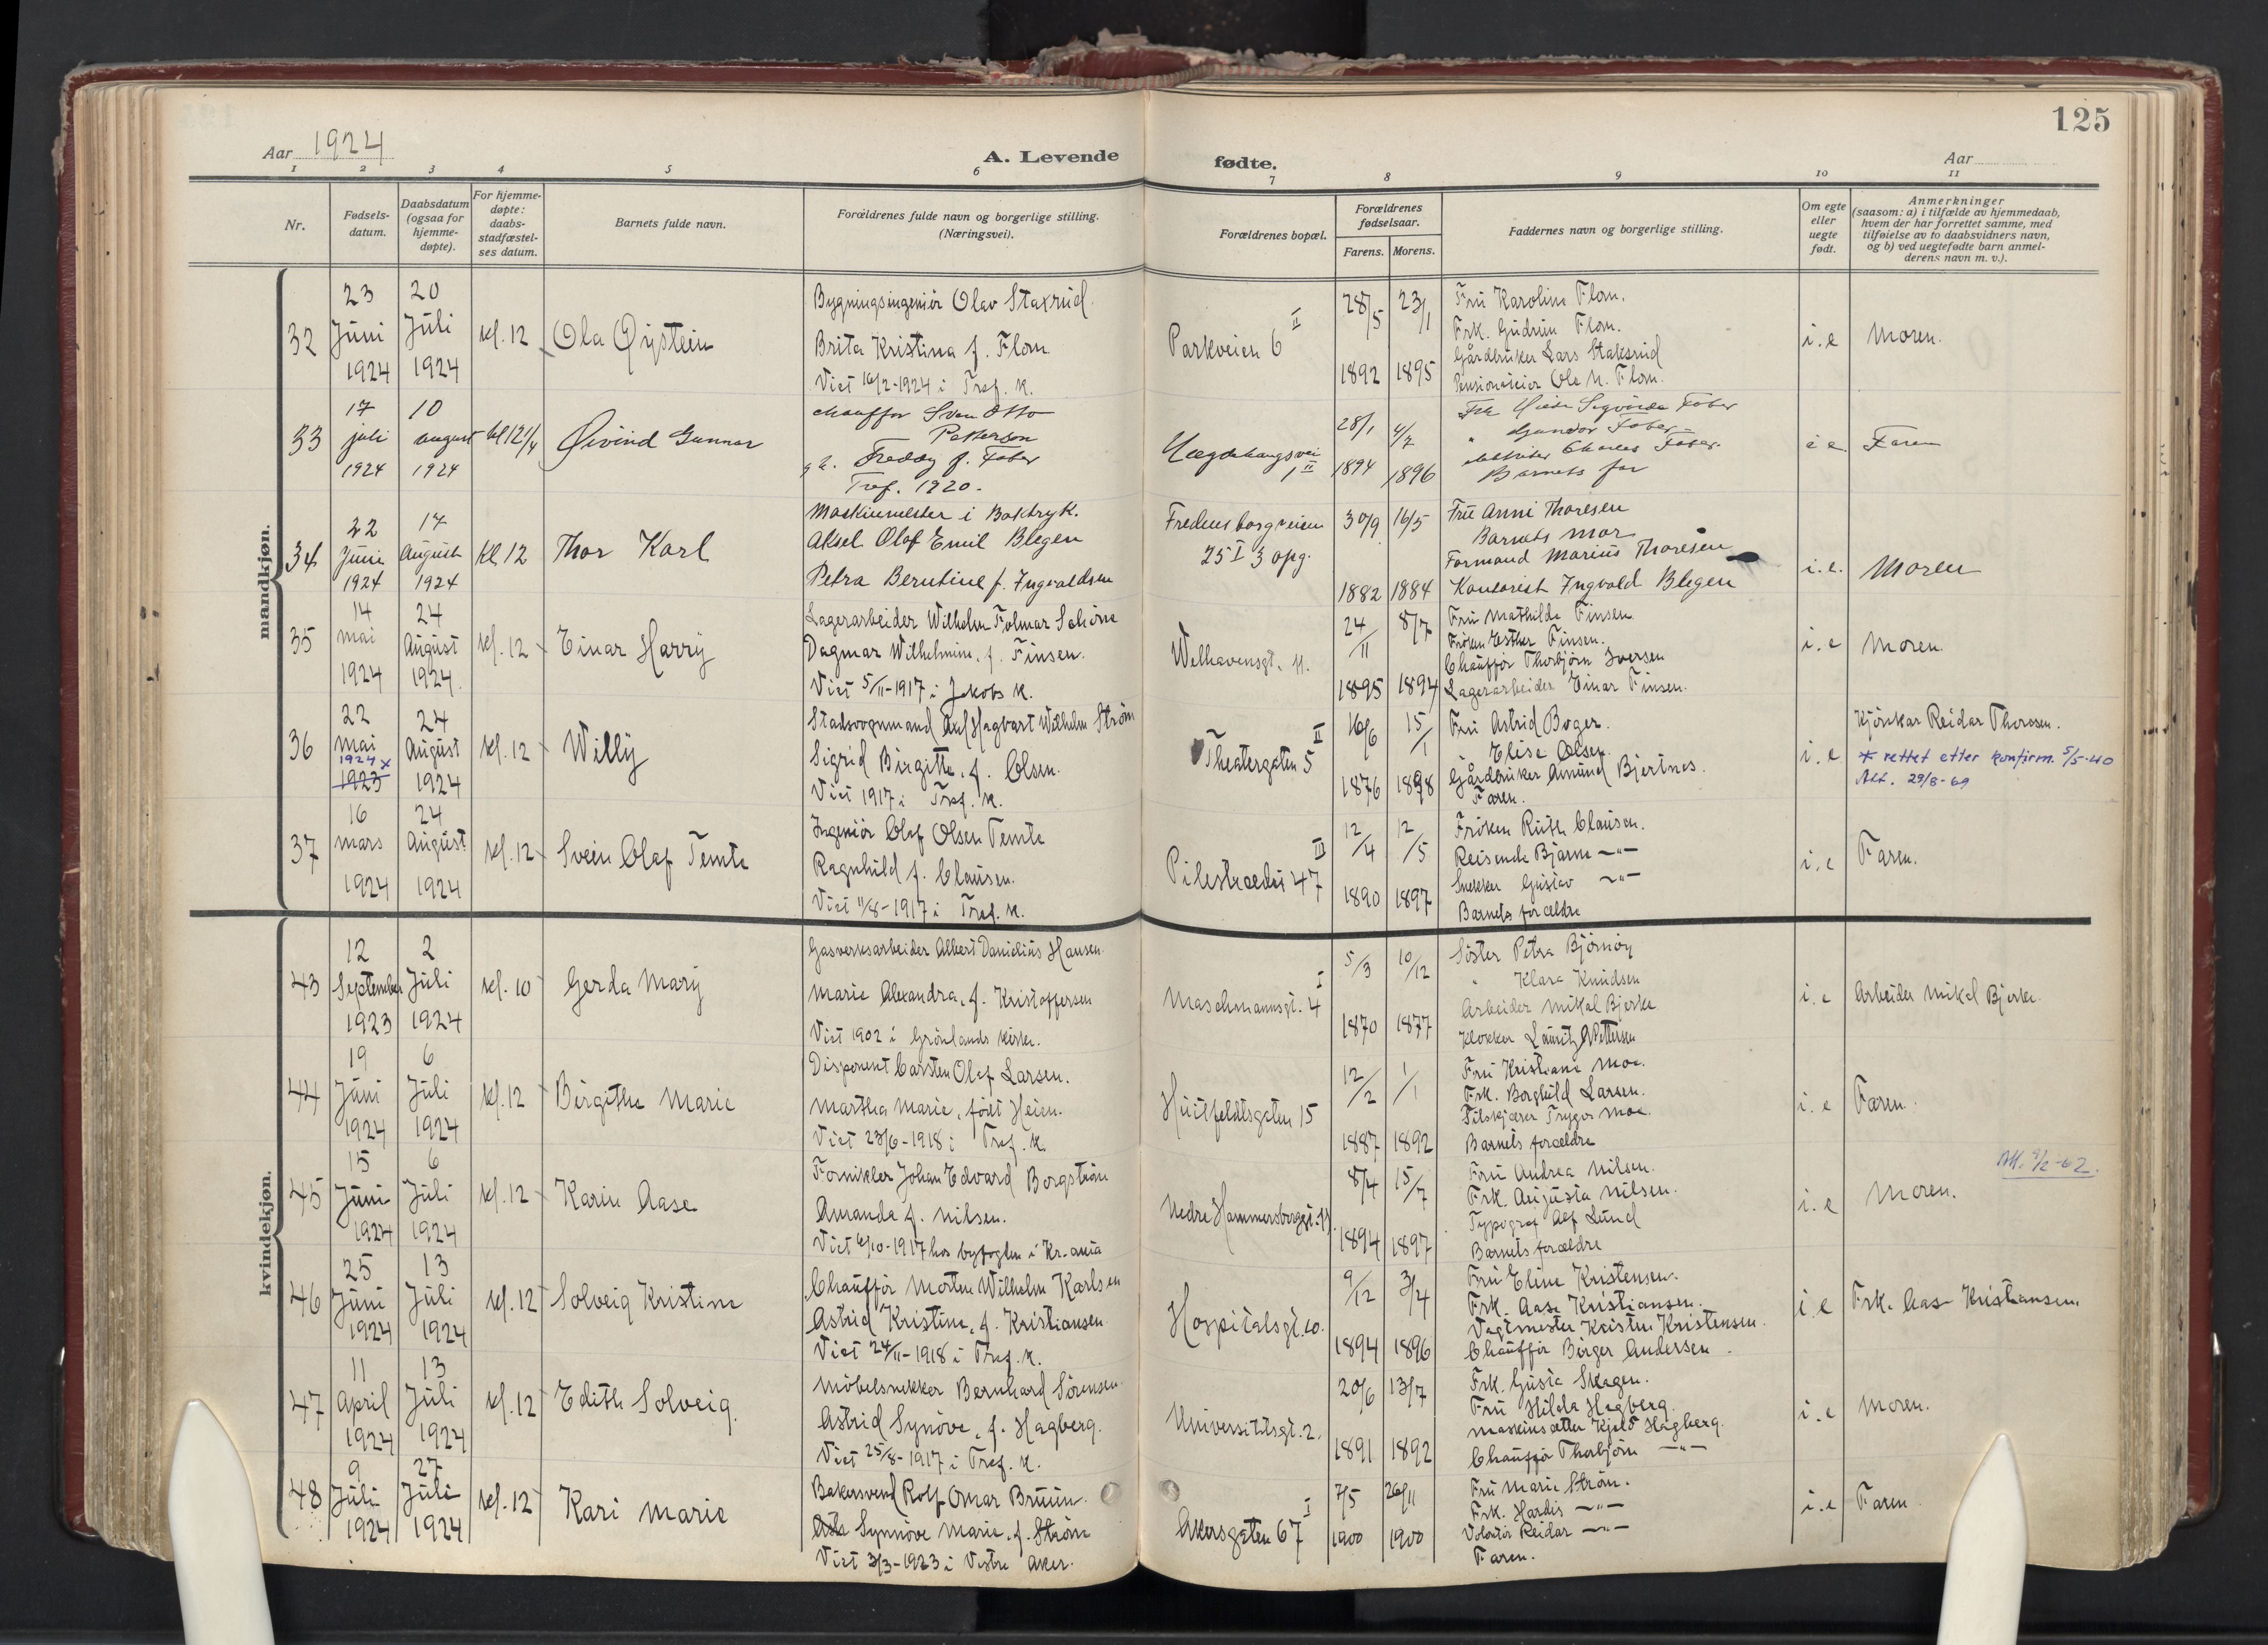 125
Aar 1924
A. Levende fødte.
Aar
1 2 3 4 5 6 7 8 9 10 11
Nr.
Fødsels-
datum.
Daabsdatum
(ogsaa for
hjemme-
døpte).
For hjemme-
døpte:
daabs-
stadfæstel-
ses datum.
Barnets fulde navn.
Forældrenes fulde navn og borgerlige stilling.
(Næringsvei).
Forældrenes bopæl.
Forældrenes
fødselsaar.
Farens. Morens.
Faddernes navn og borgerlige stilling.
Om egte
eller
uegte
født.
Anmerkninger
(saasom: a) i tilfælde av hjemmedaab,
hvem der har forrettet samme, med
tilføielse av to daabsvidners navn,
og b) ved uegtefødte barn anmel-
derens navn m. v.).
mandkjøn.
32
23
Juni
1924
20
Juli
1924
kl. 12
Ola Øistein
Bygningsingeniör Olav Staxrud.
Brita Kristina f. Flom
Viet 16/2-1924 i Tref. K.
Parkveien 6 II
28/5
1892
23/1
1895
Fru Karoline Flom.
Frk. Gudrun Flom.
Gårdbruker Lars Staksrud
Pensionateier Ole N. Flom.
i. e
Moren.
33
17
juli
1924
10
august
1924
kl 12 1/4
Øivind Gunnar
chauffør Sven Otto
Petterson
Freddy f. Faber
Tref. 1920.
1 II
28/1
1894
4/2
1896
Barnets far
i e.
Faren
34
22
Juni
1924
17
August
1924
kl 12
Thor Karl
Maskinmester i Boktryk.
Aksel Olaf Emil Blegen
Petra Berntine f. Ingvaldsen
Fredensborgveien
25 I 3 opg.
30/9
1882
16/5
1884
Fru Anni Thoresen
Barnets mor
Formand Marius Thoresen
Kontorist Ingvald Blegen
i. e.
Moren
35
14
mai
1924
24
August
1924.
kl. 12
Einar Harry
Lagerarbeider Wilhelm Folmar Schöne
Dagmar Wilhelmine, f. Finsen.
Viet 5/11-1917 i Jakobs K.
Welhavensgt. 11.
24/11
1895
8/7
1894
Fru Mathilde Finsen
Fröken Esther Finsen.
Chauffør Thorbjörn Iversen
Lagerarbeider Einar Finsen.
i. e
Moren.
36
22
mai
1924 x
1923
24
August
1924
kl. 12
Willy
Stadsvognmand Axel Hagbart Wilhelm Ström
Sigrid Birgitte, f. Olsen.
Viet 1917 i Tref. K.
Theatergaten 5 II
16/6
1876
15/1
1898
Fru Astrid Boger.
" Elise Olsen.
Gårdbruker Amund Bjertnes.
Faren.
i. e
Kjörekar Reidar Thoresen.
* rettet etter konfirm. 5/5-40
Att. 29/8-69
37
16
mars
1924
24
August
1924
kl. 12
Svein Olaf Temte
Ingeniör Olaf Olsen Temte
Ragnhild f. Clausen.
Viet 11/8-1917 i Tref. K.
Pilestrædet 47 III
12/4
1890
12/5
1897
Fröken Ruth Clausen.
Reisende Bjarne —"—
Snekker Gustav —"—
Barnets forældre
i. e
Faren.
kvindekjøn.
43
12
September
1923
2
Juli
1924
kl. 10
Gerda Mary
Gasverksarbeider Albert Danielius Hansen.
Marie Alexandra, f. Kristoffersen
Viet 1902 i Grönlands kirke.
Maschmannsgt. 4 I
5/3
1870
10/12
1877
Söster Petra Björnöy
" Klara Knudsen
Arbeider Mikal Bjerke
Klokker Lauritz A Pettersen
i. e
Arbeider Mikal Bjerke.
44
19
Juni
1924
6
Juli
1924
kl. 12
Birgithe Marie
Disponent Carsten Olaf Larsen.
Martha Marie, född Heien.
Viet 23/6-1918 i Tref. K.
Huitfeldtsgaten 15
12/2
1887
1/1
1892
Fru Kristiane Moe.
Frk. Borghild Larsen.
Filskjærer Trygve Moe.
Barnets forældre
i. e
Faren.
45
15
Juni
1924
6
Juli
1924
kl. 12
Karin Aase
Fornikler Johan Edvard Borgström
Amanda f. Nilsen.
Viet 6/10-1917 hos byfogden i Kr.ania
Nedre Hammersborggt. 11.
8/4
1894
15/7
1897
Fru Andrea Nilsen.
Frk. Augusta Nilsen.
Typograf Alf Lund
Barnets forældre
i. e
Moren.
46
25
Juni
1924
13
Juli
1924
kl. 12
Solveig Kristine
Chauffør Morten Wilhelm Karlsen
Astrid Kristine, f. Kristiansen
Viet 24/11-1918 i Tref. K.
Hospitalsgt. 10.
9/12
1894
3/4
1896
Fru Eline Kristensen.
Frk. Aase Kristiansen.
Vagtmester Kristen Kristensen.
Chauffør Birger Andersen.
i. e
Frk. Aase Kristiansen.
47
11
April
1924
13
Juli
1924
kl. 12
Edith Solveig.
Möbelsnekker Bernhard Sörensen.
Astrid Synöve, f. Hagberg.
Viet 25/8-1917 i Tref. K.
Universitetsgt. 2.
20/6
1891
13/7
1892
Frk. Gusta Skagen.
Fru Hilda Hagberg.
Maskinsætter Kjeld Hagberg.
Chauffør Thorbjörn —"—
i. e
Moren.
48
9
Juli
1924
27
Juli
1924
kl. 12
Kari Marie
Bakersvend Rolf Omar Bruun.
Synnöve Marie, f. Ström
Viet 3/3-1923 i Vestre Aker.
Akersgaten 67 I
7/5
1900
26/11
1900
Fru Marie Ström.
Frk. Hardis —"—
Volontör Reidar —"—
Faren.
i. e
Faren.